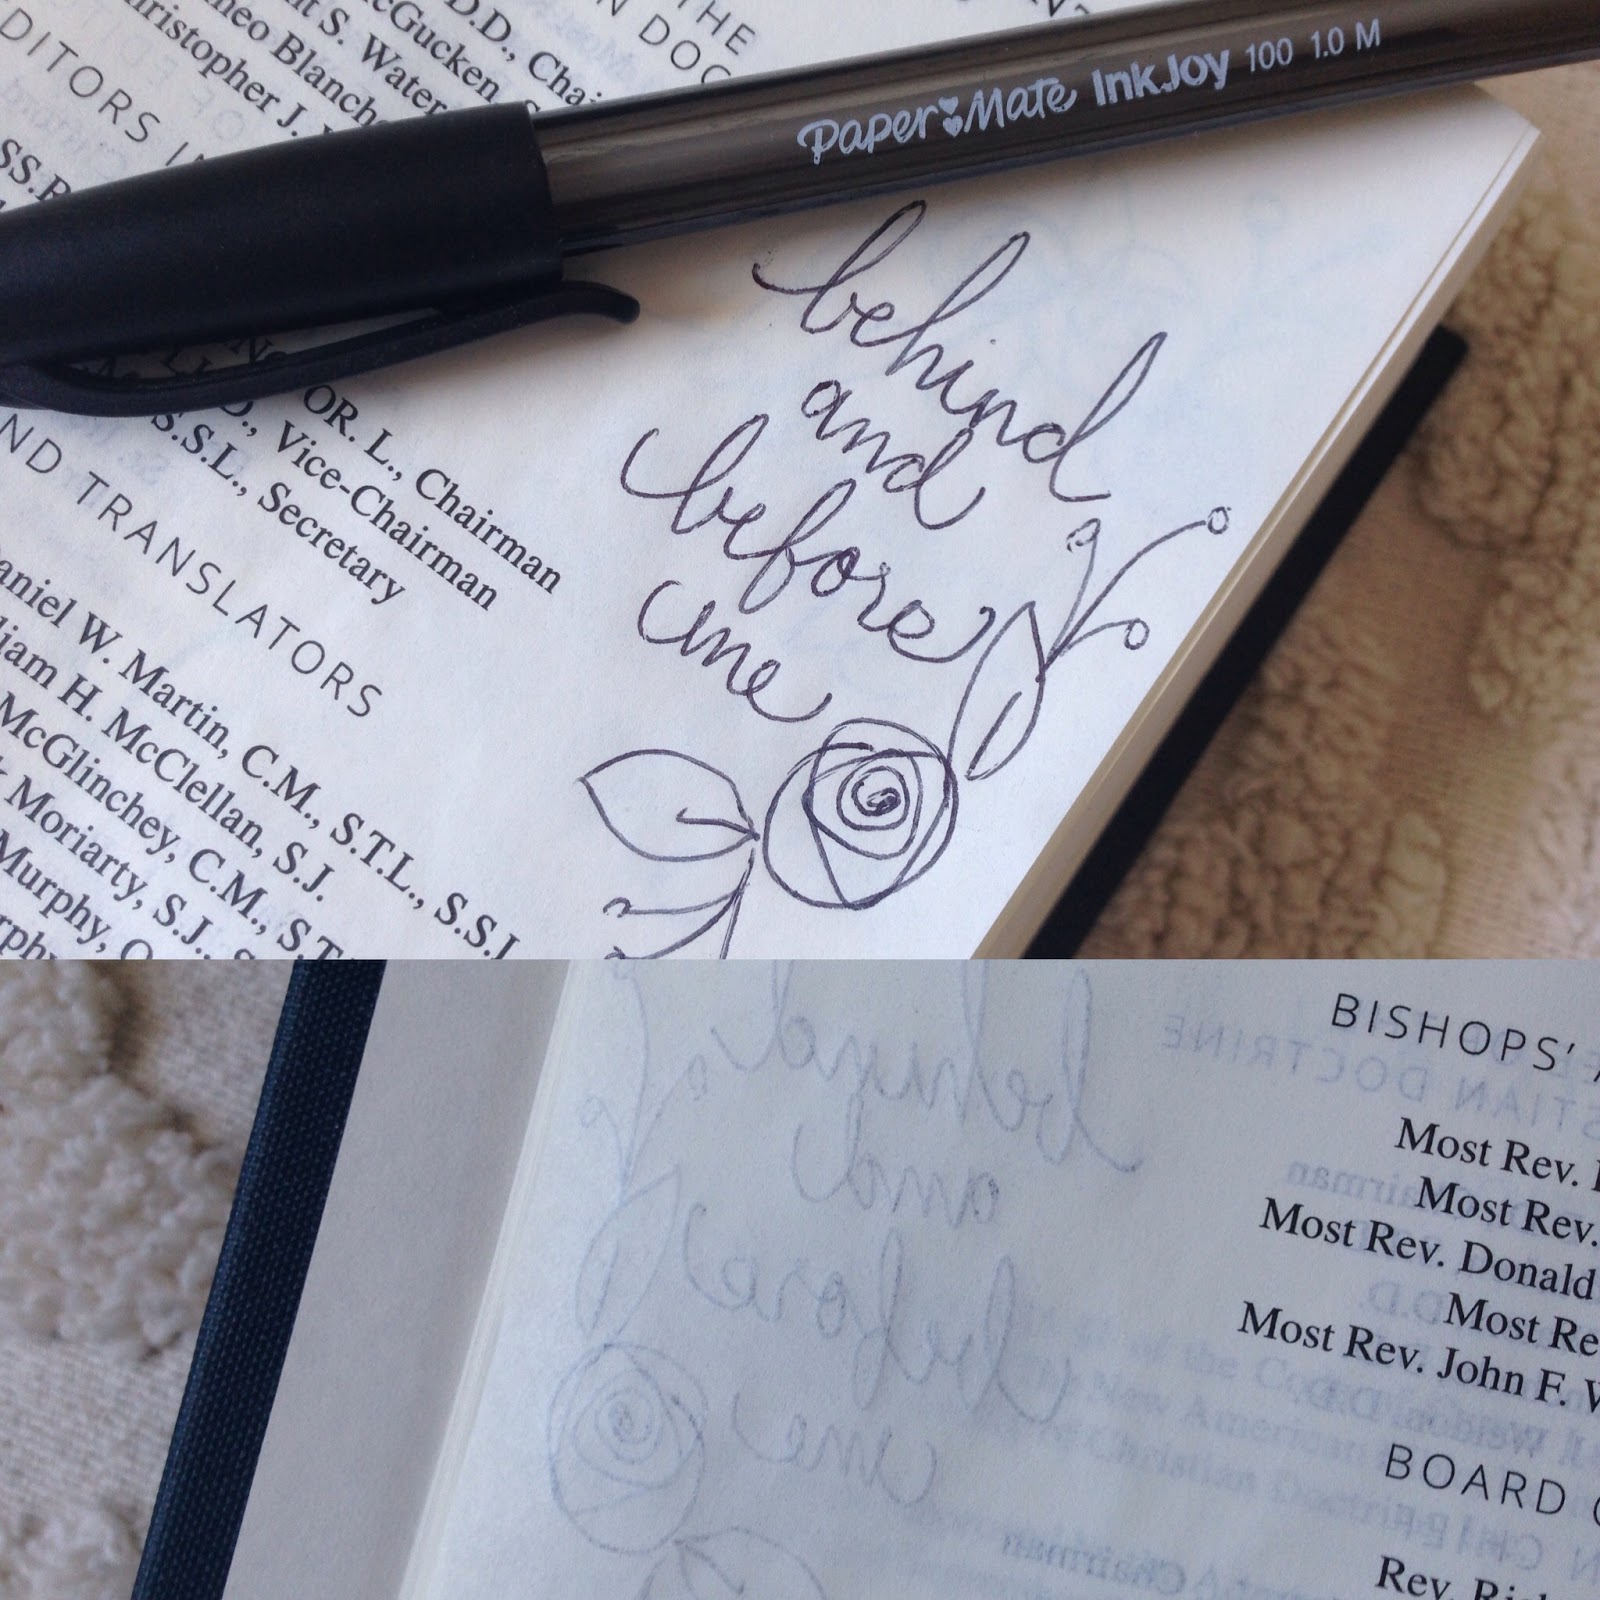 THE
N DOC
D.D., Chai
McGucken, S
t S. Water
meo Blanch
hristopher J.
DITORS I
SS.R
Paper Mate InkJoy 100 1.0 M
behind
and
before
me
OR. L., Chairman
D., Vice-Chairman
S.S.L., Secretary
ND TRANSLATORS
aniel W. Martin, C.M., S.T.L., S.S.L
liam H. McClellan, S.J.
McGlinchey, C.M., S.T.
k Moriarty, S.J., S
Murphy, O
rphy
behind
and
before
me
BISHOPS'
STIAN DOCTRINE
Most Rev.
Most Rev.
Most Rev. Donald
Most Re
Most Rev. John F. W
BOARD
Chairman
Rev. Ric